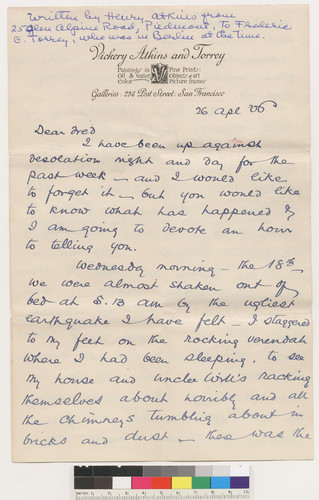 Written by Henry Atkins from
25 Glen Alpine Road, Piedmont, to Frederic
C. Torrey, who was in Berlin at the time.
Vickery Atkins and Torrey
Paintings in Oil & water Color
Fine Prints: Objects of Art Picture frames
Galleries: 236 Post Street: San Francisco
26 Apl 06
Dear Fred
I have been up against
desolation night and day for the
past week – and I would like
to forget it – but you would like
to know what has happened &
I am going to devote an hour
to telling you.
Wednesday morning – the 18th
we were almost shaken out of
bed at 5.13 am by the ugliest
earthquake I have felt – I staggered
to my feet on the rocking verendah
where I had been sleeping, to see
my house and uncle Will's racking
themselves about horribly and all
the chimneys tumbling about in
bricks and dust – there was the